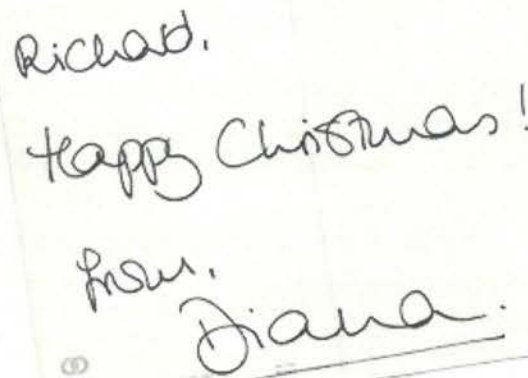 Richard.
Happy Christmas!
from.
Diana.